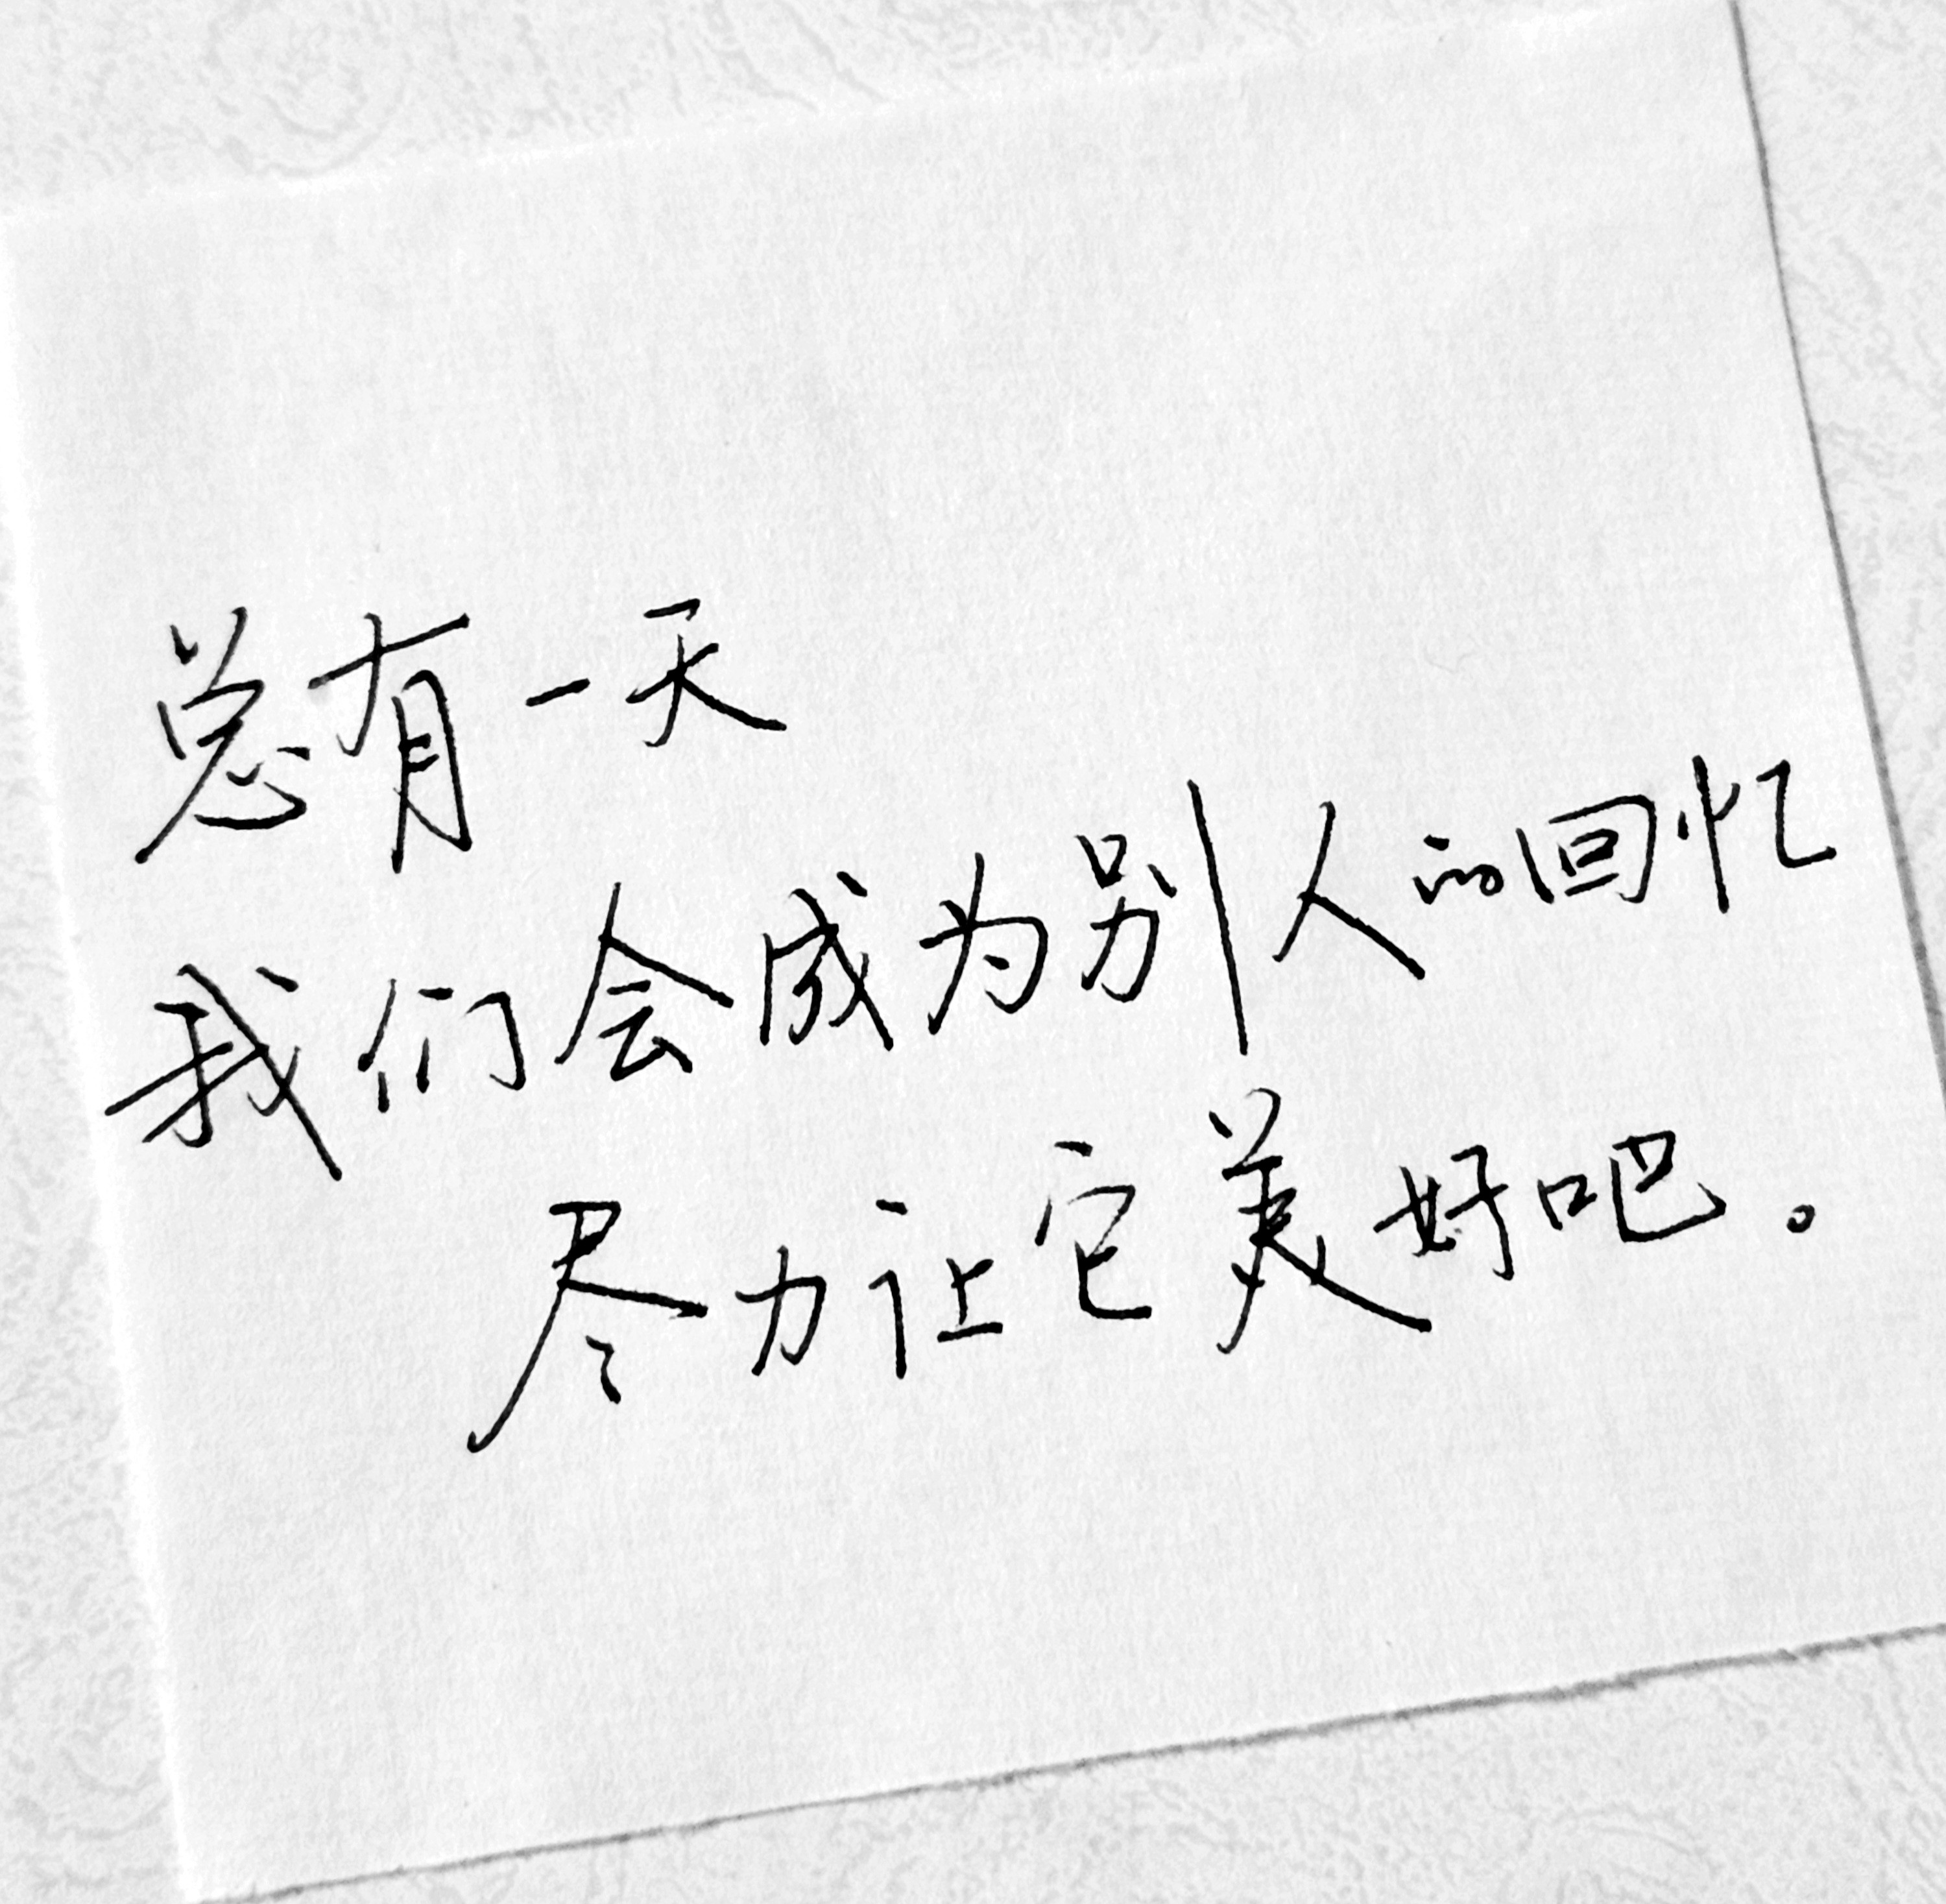 总有一天
我们会成为别人的回忆
尽力让它美好吧。